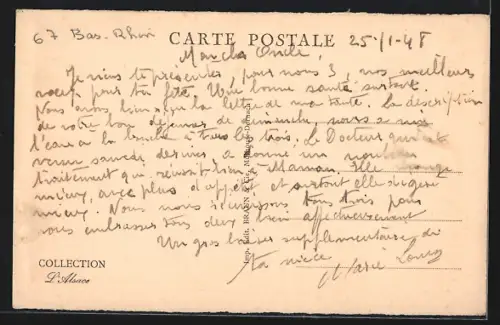 67 Bas-Rhin
CARTE POSTALE 25-1-48
Mon cher Oncle,
Je viens te présenter, pour nous 3, nos meilleurs
voeux pour ta fête. Une bonne santé surtout.
Nous avons bien la lettre de ma tante. La description
de votre bon de dimanche, nous a mis
l'eau à la bouche à tous les trois. Le Docteur qui est
venu samedi dernier a donné un nouveau
traitement qui réussit bien à Maman. Elle mange
mieux, avec plus d'appétit et surtout elle digère
mieux. Nous nous réunissons tous trois pour
vous embrasser tous deux bien affectueusement
Un gros baiser supplémentaire de
ta nièce
Marie
COLLECTION
L'Alsace
Imp. Edit. BRAUN & Cie, Mulhouse-Dornach